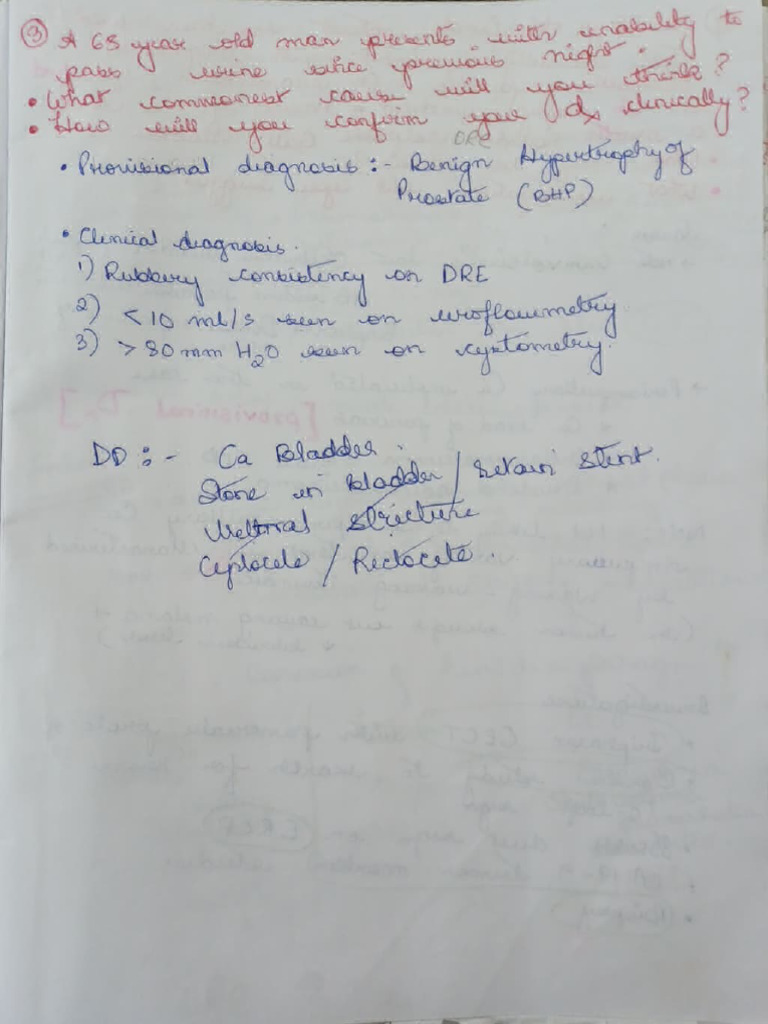 ③ A 65 year old man presents with inability to
pass urine since previous night.
• What commonest cause will you think?
• How will you confirm your Dx clinically?
DRE
• Provisional diagnosis :- Benign Hypertrophy of
Prostate (BHP)
• Clinical diagnosis.
1) Rubbery consistency on DRE
2) < 10 ml/s seen on uroflowmetry
3) > 80 mm H2O seen on cystometry.
DD :- Ca Bladder.
Stone in bladder / retain stent.
Urethral stricture
Cystocele / Rectocele.